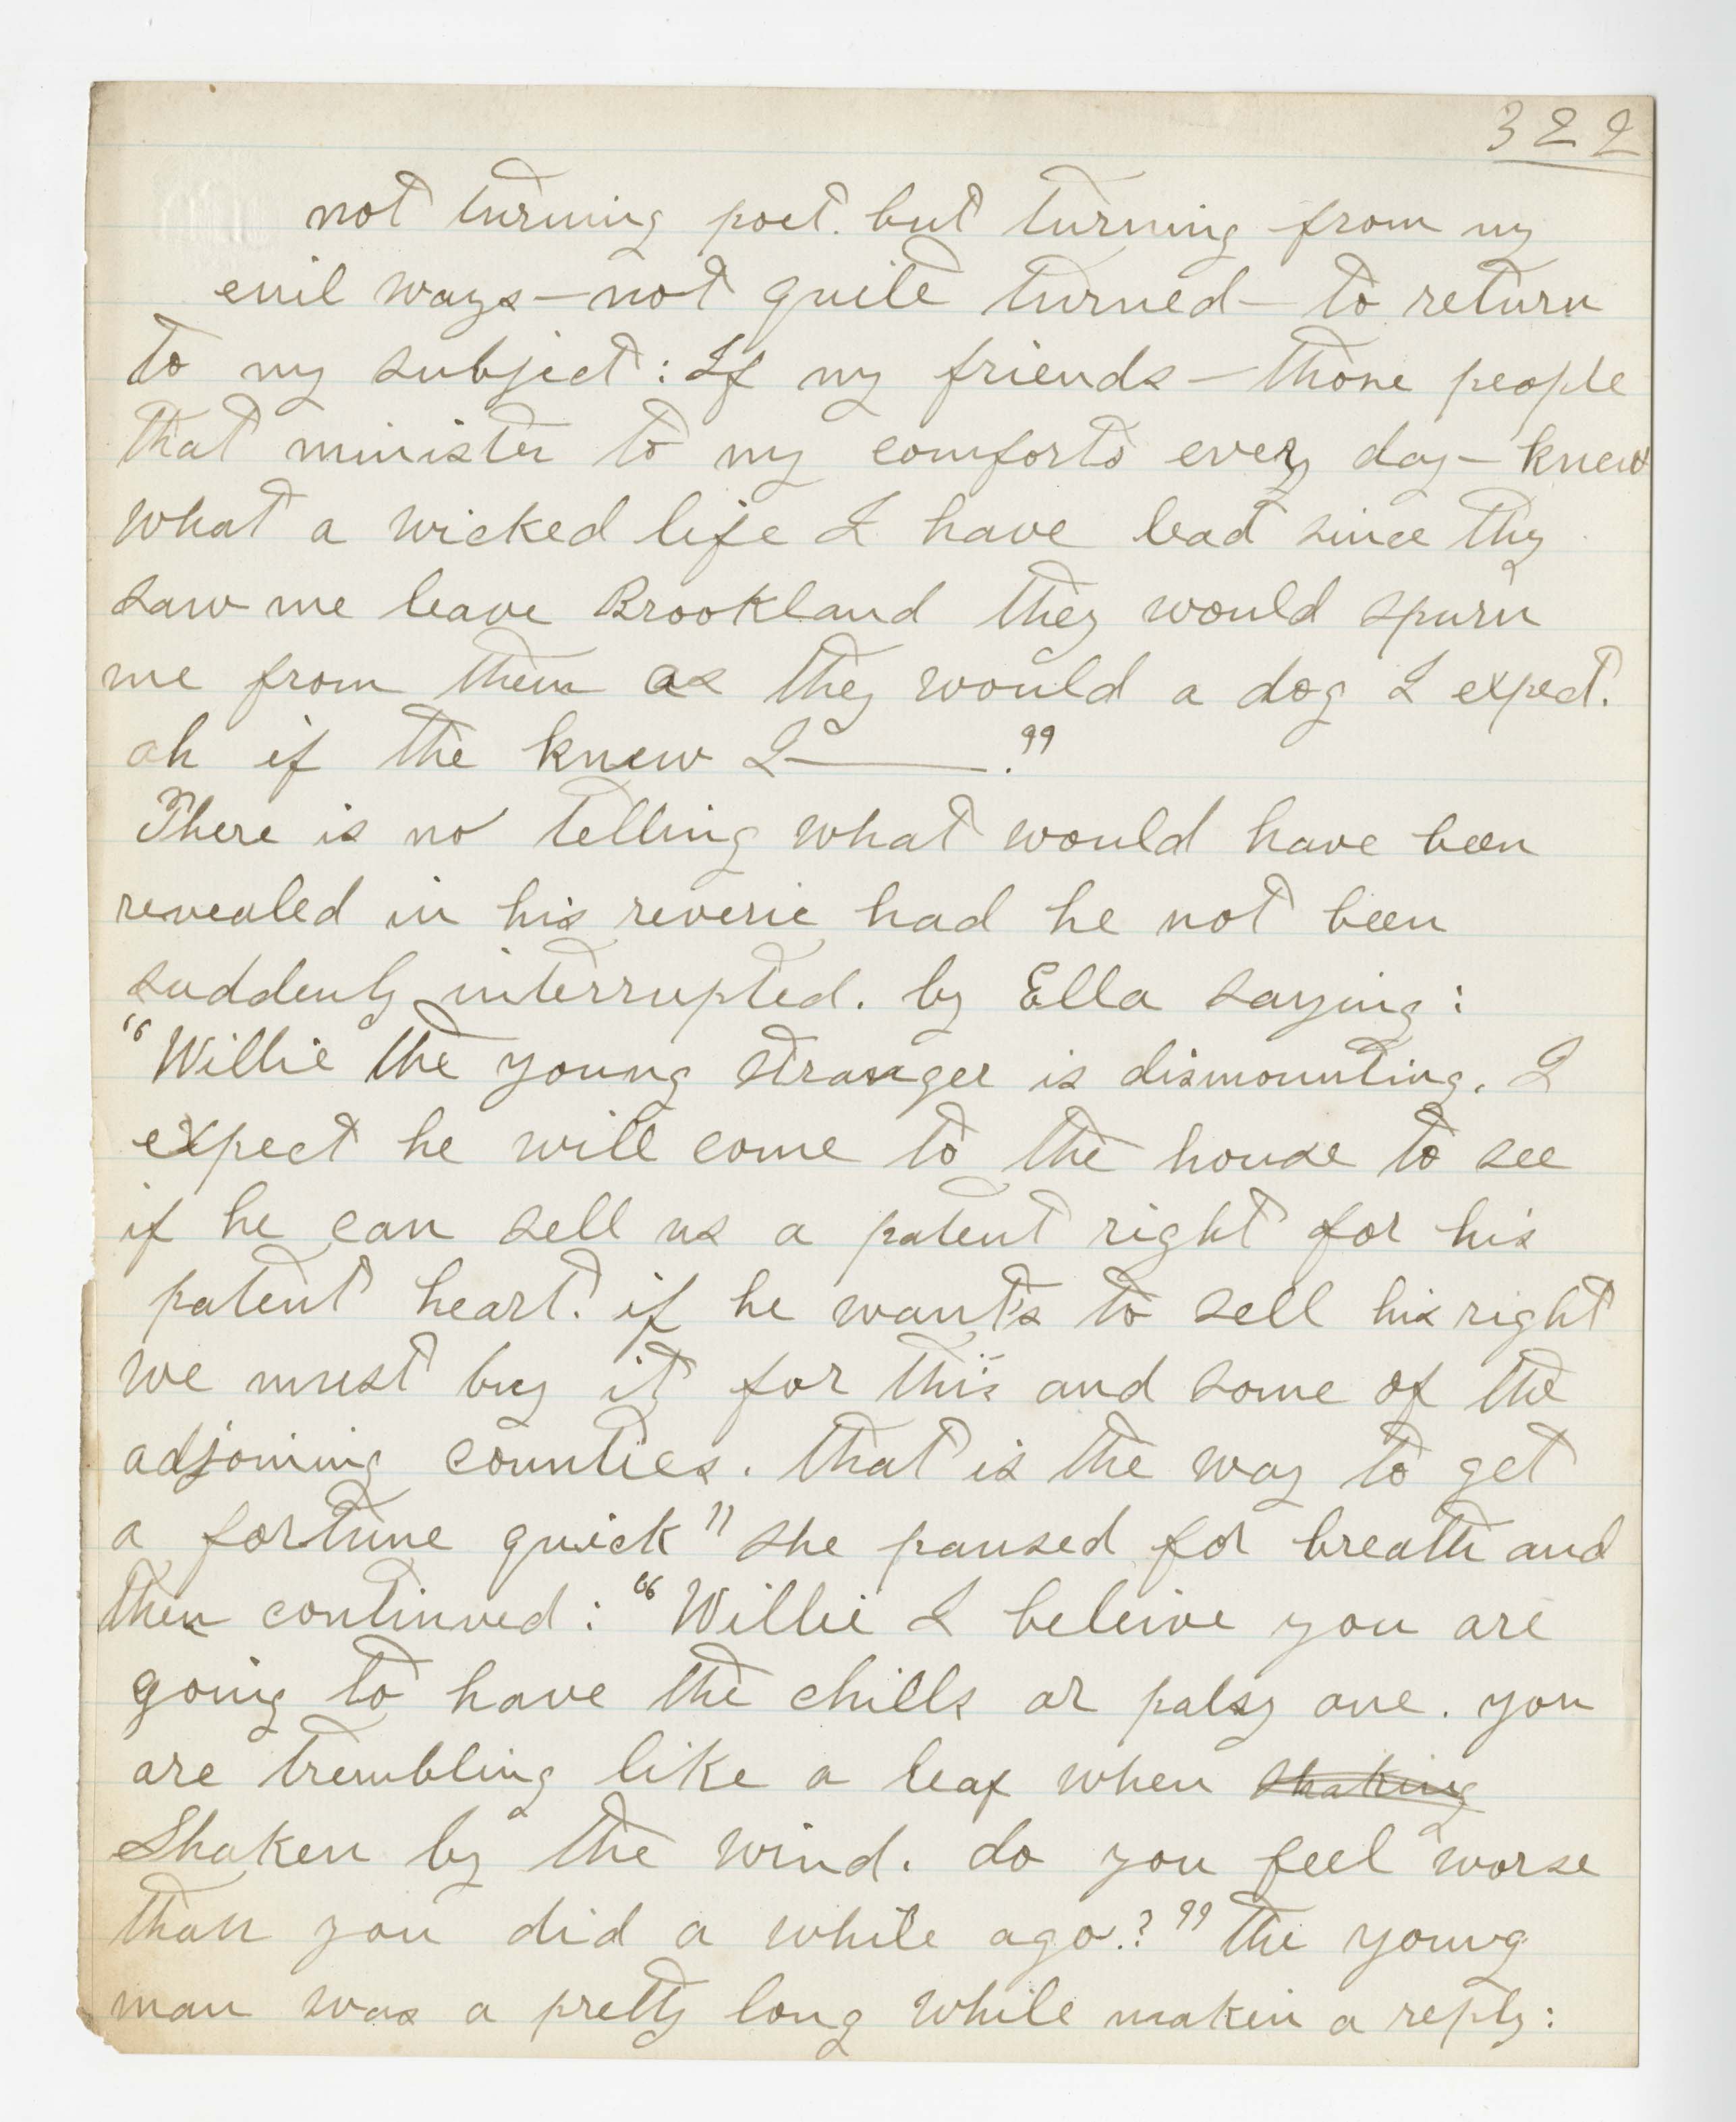 322
not turning poet. but turning from my
evil ways—not quite turned—to return
to my subject: If my friends—those people
that minister to my comforts every day—knew
what a wicked life I have lead since they
saw me leave Brookland they would spurn
me from them as they would a dog I expect.
oh if the knew I———."
There is no telling what would have been
revealed in his reverie had he not been
suddenly interrupted. by Ella saying:
"Willie the young stranger is dismounting. I
expect he will come to the house to see
if he can sell us a patent right for his
patent heart. if he want's to sell his right
we must buy it for this and some of the
adjoining counties. that is the way to get
a fortune quick" she paused for breath and
then continued: "Willie I beleive you are
going to have the chills or palsy one. you
are trembling like a leaf when shaking
Shaken by the wind. do you feel worse
than you did a while ago.?" the young
man was a pretty long while makin a reply: